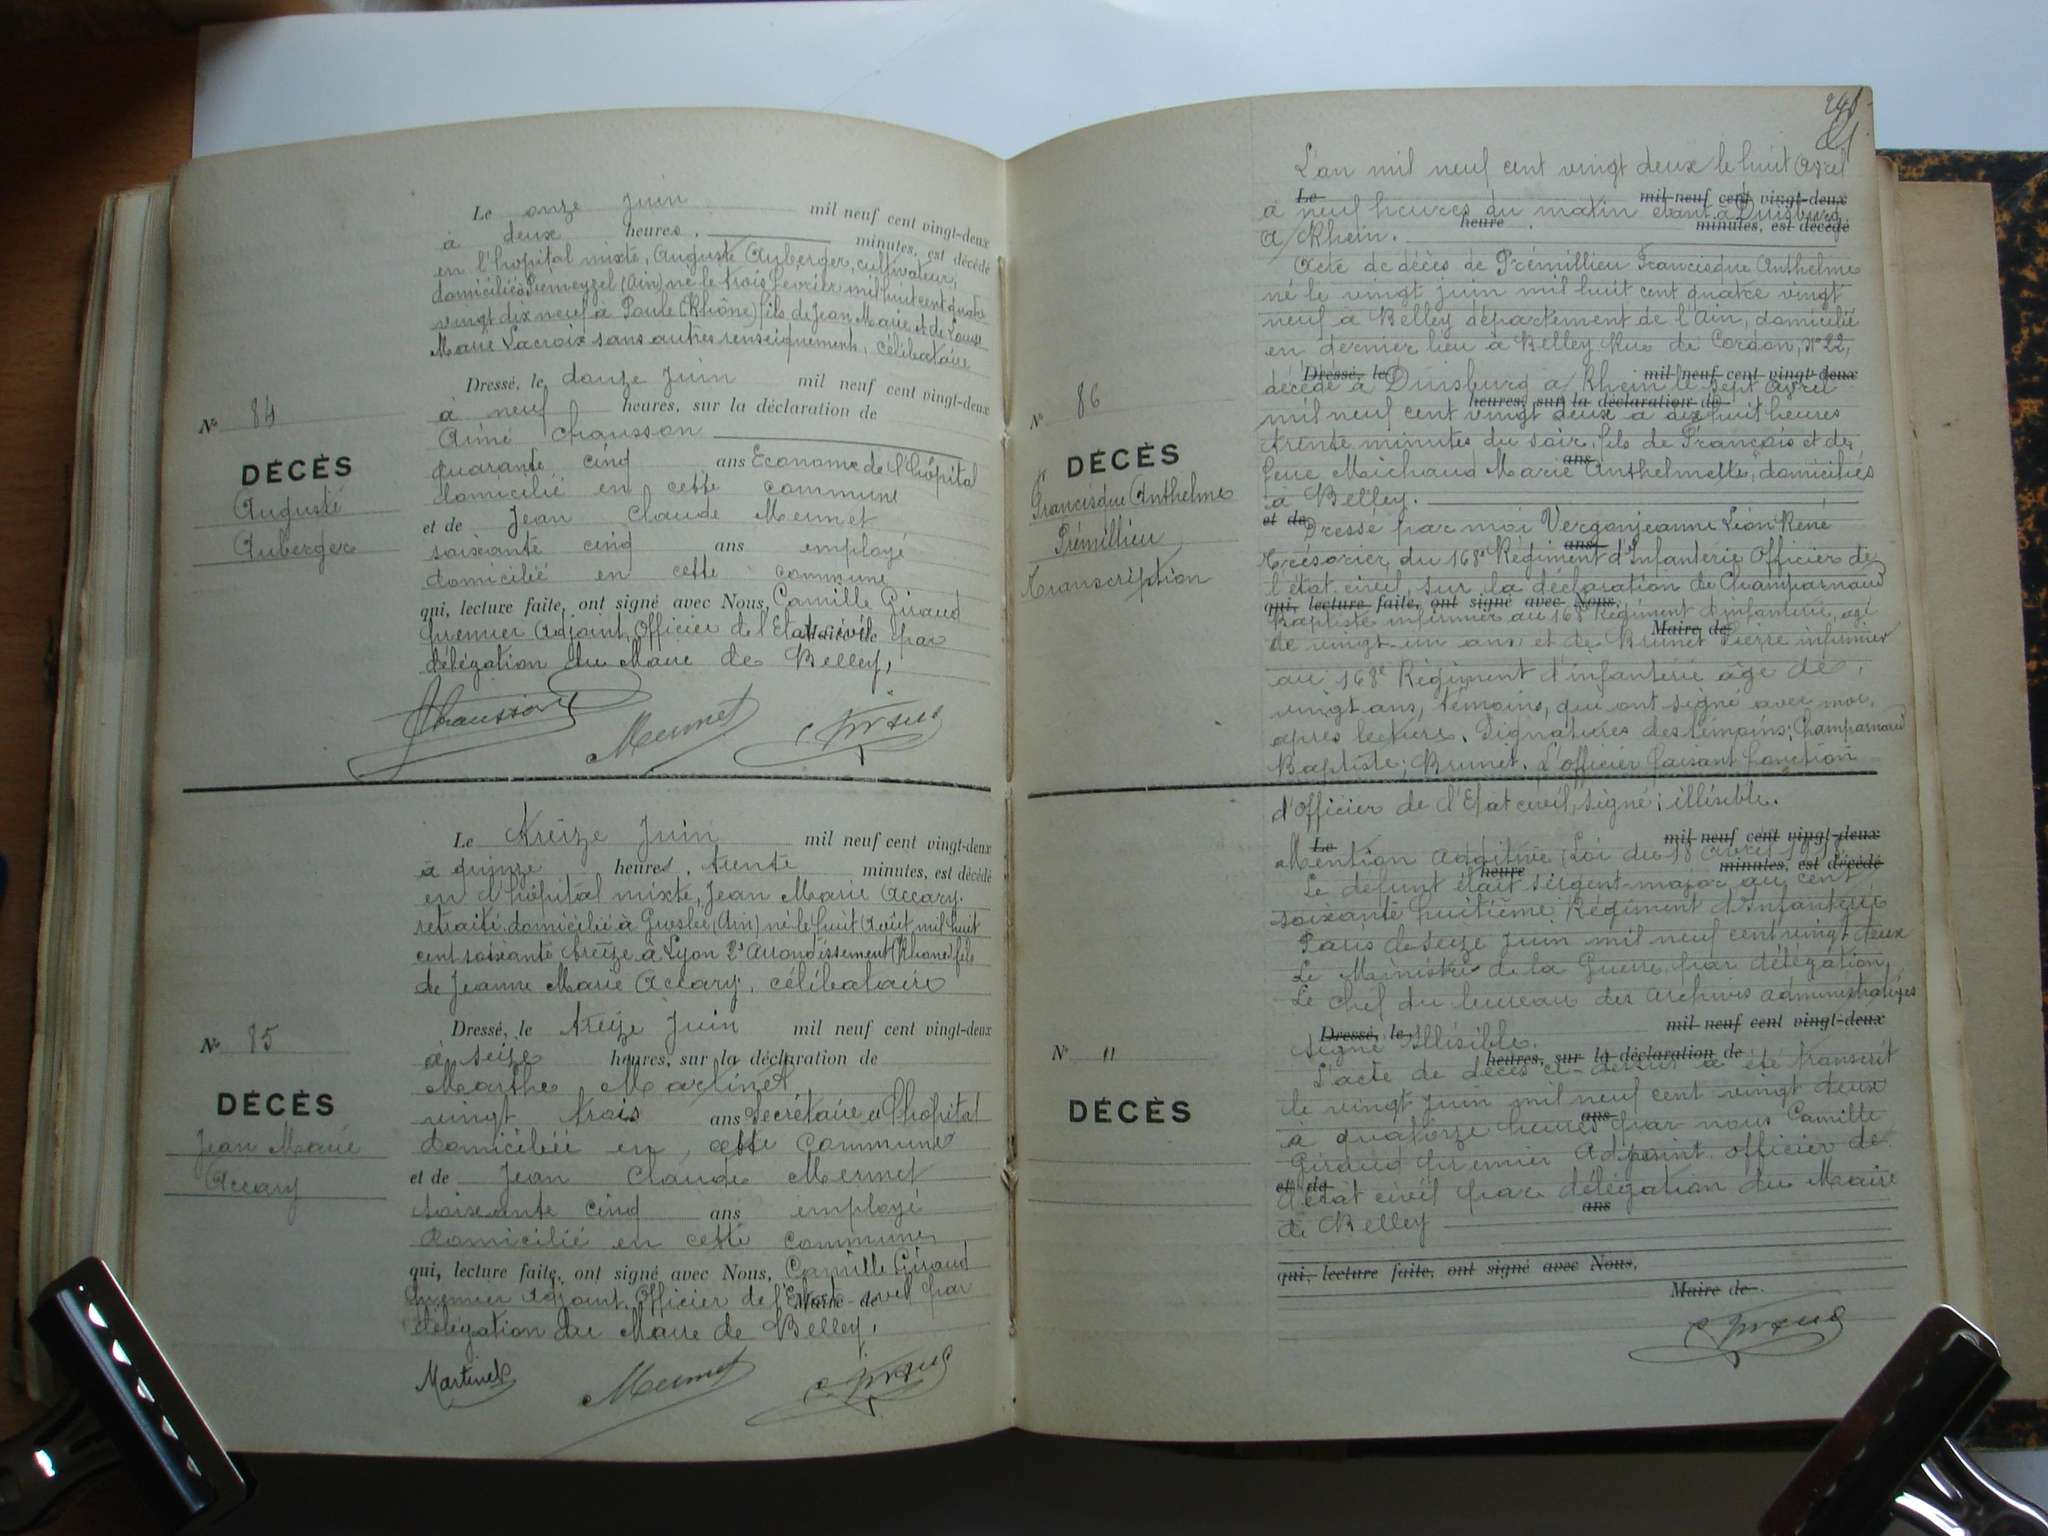 Le onze Juin mil neuf cent vingt-deux
à deux heures, minutes, est décédé
en l'hôpital mixte, Auguste Auberger, cultivateur,
domicilié à Premeyzel (Ain) né le trois Février mil huit cent quatre
vingt dix neuf à Poule (Rhône) fils de Jean Marie et de Louise
Marie Lacroix sans autres renseignements, célibataire
Dressé, le douze Juin mil neuf cent vingt-deux
à neuf heures, sur la déclaration de
Aimé Chausson
quarante cinq ans Econome de l'hôpital
domicilié en cette commune
et de Jean Claude Mermet
soixante cinq ans employé
domicilié en cette commune
qui, lecture faite, ont signé avec Nous, Camille Giraud
Premier Adjoint, Officier de l'Etat civil par
Maire de
délégation du Maire de Belley,
Nº 84
DÉCÈS
Auguste
Auberger
Chausson Mermet C. Giraud
Le treize Juin mil neuf cent vingt-deux
à quinze heures, trente minutes, est décédé
en l'hôpital mixte, Jean Marie Accary.
retraité domicilié à Groslée (Ain) né le huit Août mil huit
cent soixante treize à Lyon 2e Arrondissement (Rhône) fils
de Jeanne Marie Accary, célibataire
Dressé, le treize Juin mil neuf cent vingt-deux
à seize heures, sur la déclaration de
Marthe Martinet
vingt trois ans Secrétaire à l'hôpital
domiciliée en cette commune
et de Jean Claude Mermet
soixante cinq ans employé
domicilié en cette commune
qui, lecture faite, ont signé avec Nous, Camille Giraud
Premier Adjoint, Officier de l'Etat civil par
Maire de
délégation du Maire de Belley,
Nº 85
DÉCÈS
Jean Marie
Accary
Martinet Mermet C. Giraud
L'an mil neuf cent vingt deux le huit Avril
Le mil neuf cent vingt-deux
à neuf heures du matin étant à Duisburg
heure minutes, est décédé
a/Rhein.
Acte de décès de Prémillieu Francisque Anthelme
né le vingt juin mil huit cent quatre vingt
neuf à Belley département de l'Ain, domicilié
en dernier lieu à Belley Rue de Cordon, nº 22,
Dressé, le mil neuf cent vingt-deux
décédé à Duisburg a/Rhein le sept Avril
heures, sur la déclaration de
mil neuf cent vingt deux à dix huit heures
trente minutes du soir, fils de François et de
ans
feue Michaud Marie Anthelmette, domiciliés
à Belley.
et de
Dressé par moi Vergonjeanne Léon René
ans
Trésorier du 168e Régiment d'Infanterie Officier de
l'état civil sur la déclaration de Champarnaud
qui, lecture faite, ont signé avec Nous,
Baptiste infirmier au 168e Régiment d'infanterie, âgé
Maire de
de vingt-un ans, et de Brunet Pierre infirmier
au 168e Régiment d'infanterie âgé de
vingt ans, témoins, qui ont signé avec moi,
après lecture. Signatures des témoins: Champarnaud
Baptiste; Brunet. L'officier faisant fonction
d'Officier de l'Etat civil, signé; illisible.
Nº 86
DÉCÈS
Francisque Anthelme
Prémillieu
Transcription
Le mil neuf cent vingt-deux
Mention additive (Loi du 18 Avril
heure minutes, est décédé
Le défunt était sergent-major au cent
soixante huitième Régiment d'Infanterie
Paris le seize juin mil neuf cent vingt deux
Le Ministre de la Guerre, par délégation,
Le chef du bureau des archives administratives
Dressé, le mil neuf cent vingt-deux
signé illisible.
heures, sur la déclaration de
L'acte de décès ci-dessus a été transcrit
le vingt juin mil neuf cent vingt deux
ans
à quatorze heures par nous Camille
Giraud premier Adjoint officier de
et de
l'état civil par délégation du Maire
ans
de Belley
qui, lecture faite, ont signé avec Nous,
Maire de
C. Giraud
Nº "
DÉCÈS